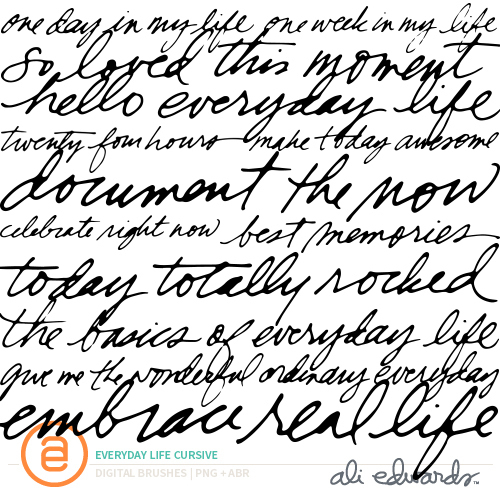 one day in my life one week in my life
so loved this moment
hello everyday life
twenty four hours make today awesome
document the now
celebrate right now best memories
today totally rocked
the basics of everyday life
give me the wonderful ordinary everyday
embrace real life
ae
EVERYDAY LIFE CURSIVE
DIGITAL BRUSHES | PNG + ABR
ali edwards™